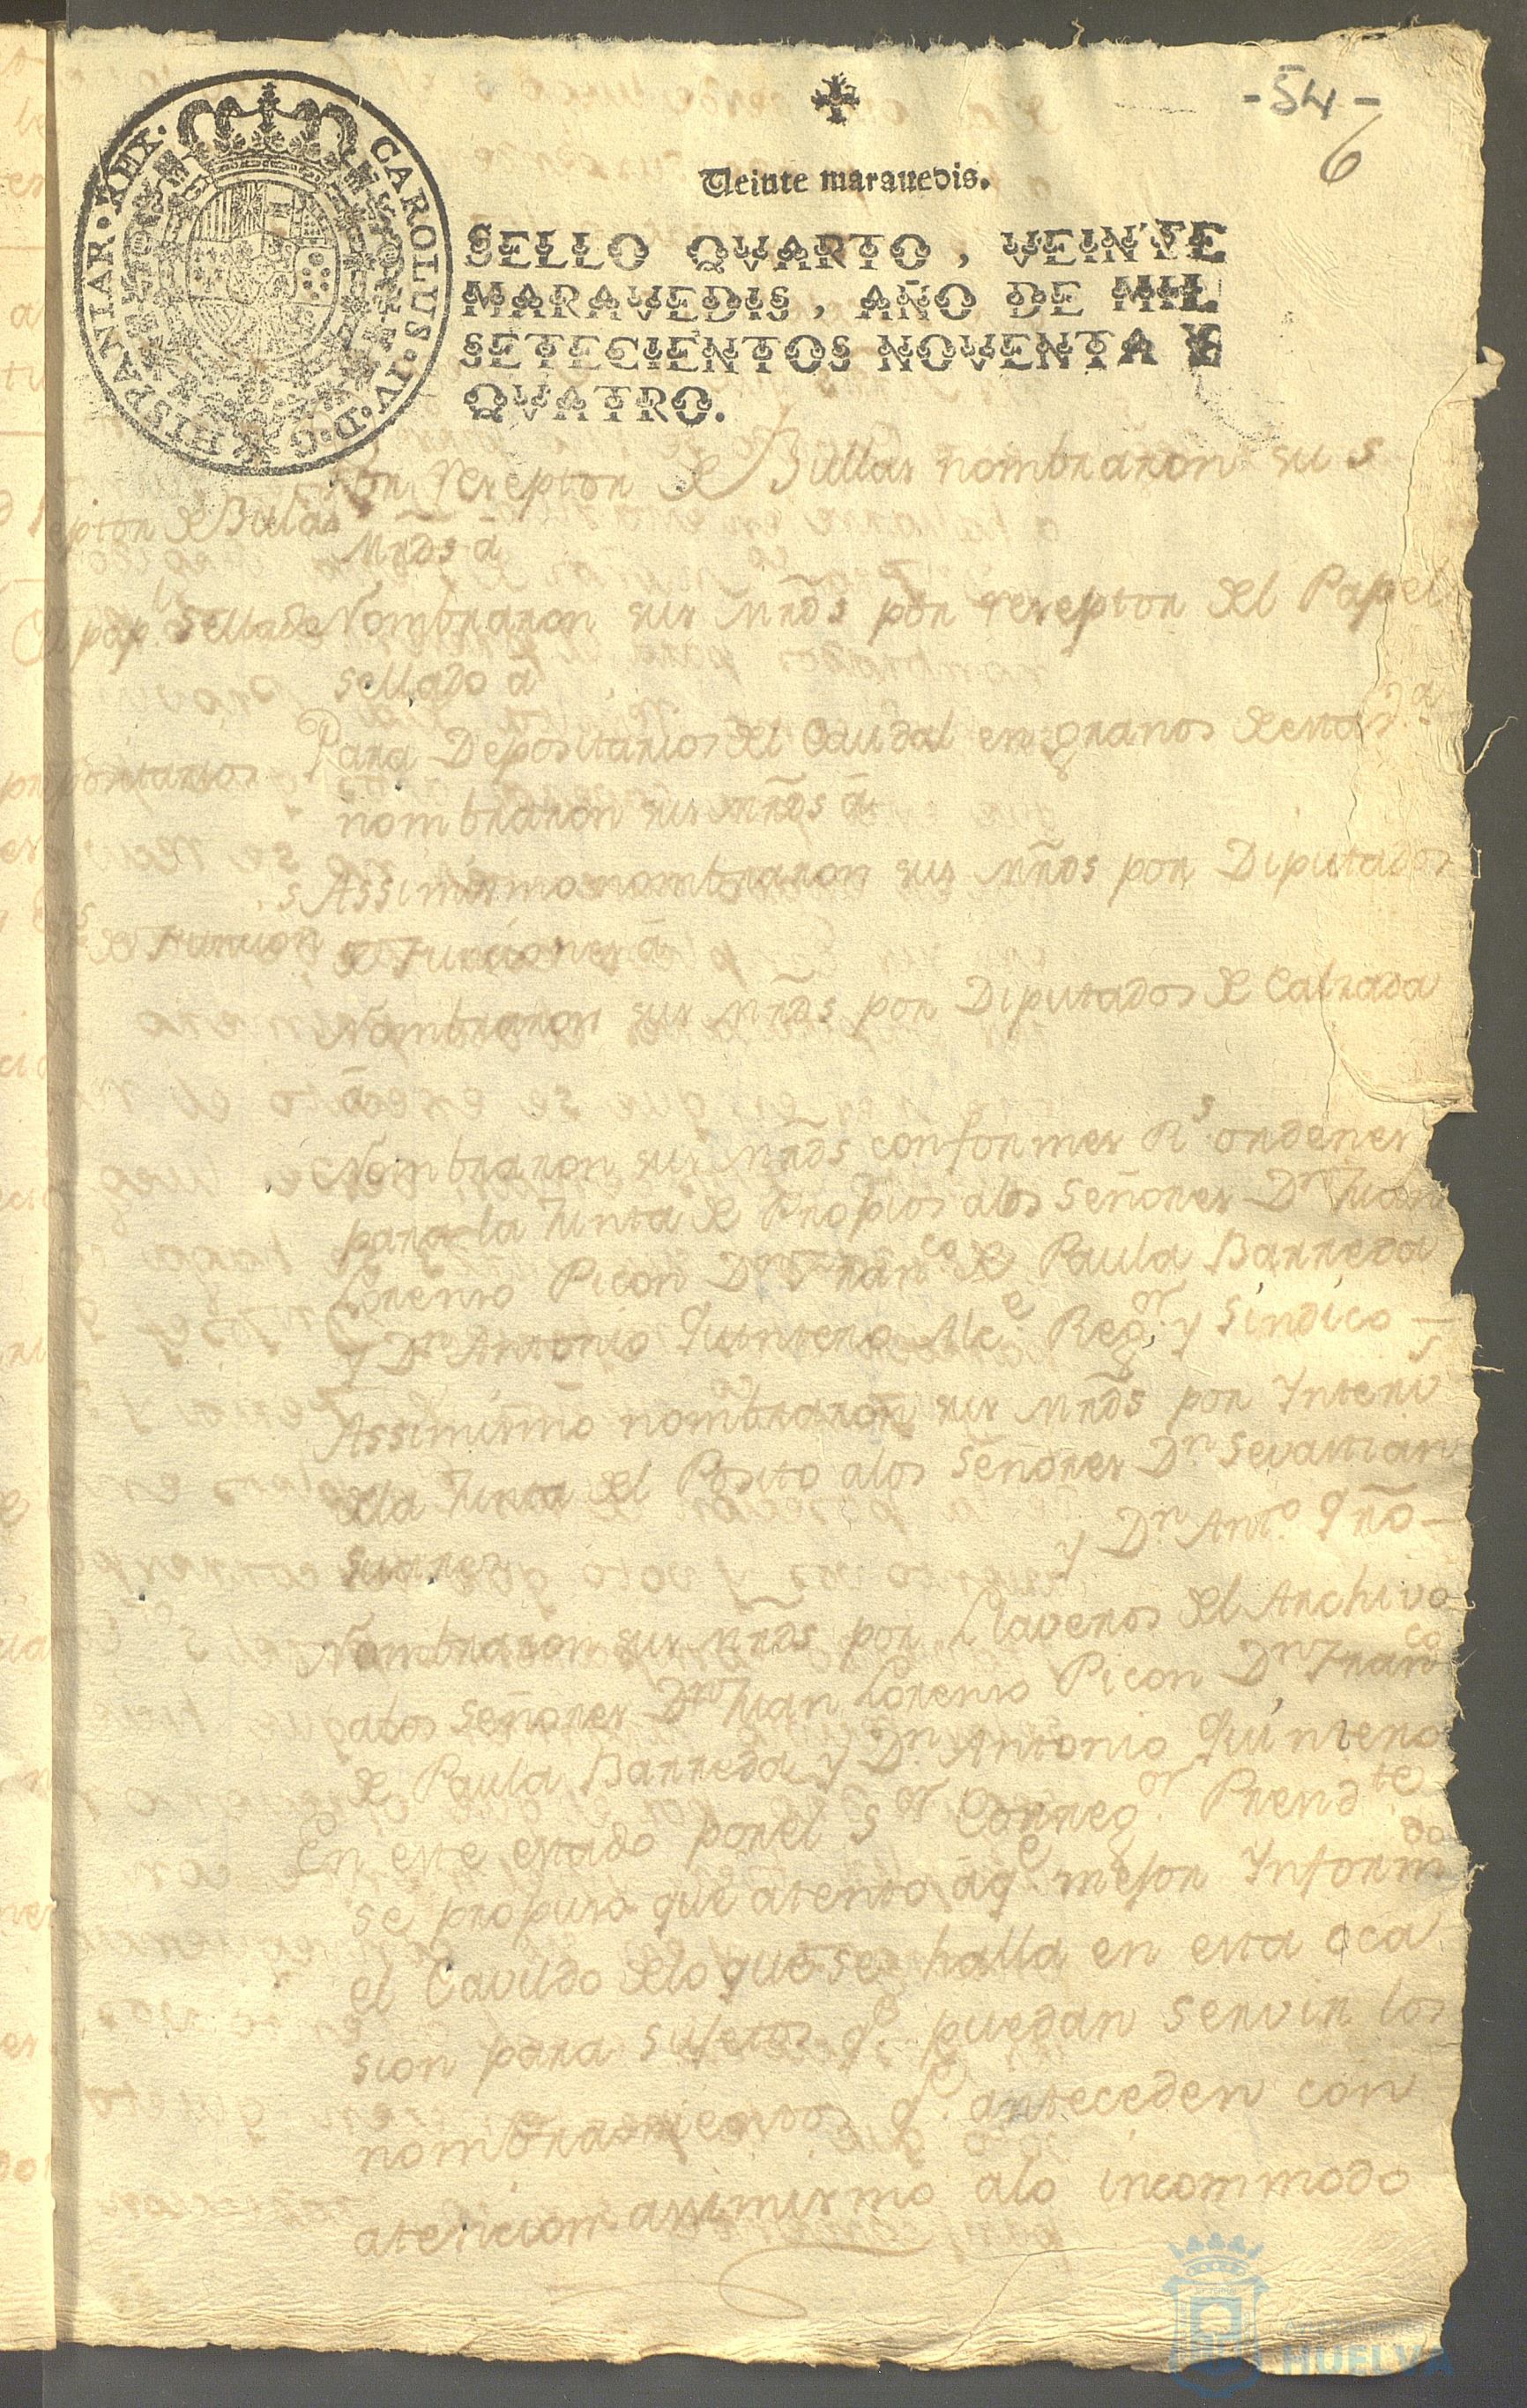 -54-
6
CAROLUS·IV·D·G·HISPANIAR·REX·
Veinte maravedis.
SELLO QVARTO, VEINTE
MARAVEDIS, AÑO DE MIL
SETECIENTOS NOVENTA Y
QVATRO.
Por reseptor de Bullas nombraron sus
eptor de Bulas
Mrds ā
pap.l Sellado
Nombraron sus Mrds por reseptor del Papel
sellado ā
Para Depositarios del Caudal en granos de esta
positarios
nombraron sus mrds ā
Assimismo nombraron sus Mrds por Diputados
de Funcion
de Funciones ā
Nombraron sus Mrds por Diputados de Calzada
ā
Nombraron sus Mrds conformes Rs ordenes
para la Junta de Propios alos Señores Dn Juan
Lorenso Picon Dn Franco de Paula Barreda
y Dn Antonio Quintero Alce Regor y Sindico
Assimismo nombraron sus Mrds por Interv
dela Junta del Posito alos Señores Dn Sevastian
Suares y Dn Anto Qño
Nombraron sus Mrds por Llaveros del Archivo
alos Señores Dn Juan Lorenso Picon Dn Franco
de Paula Barreda y Dn Antonio Quintero
En este estado por el Sor Corregor Presdte
se propuso que atento āqe mejor Informdo
el Cavildo delo que se halla en esta oca
sion para sujetos qe puedan servir los
nombramientos qe anteceden con
atencion assimismo alo incommodo
HUELVA